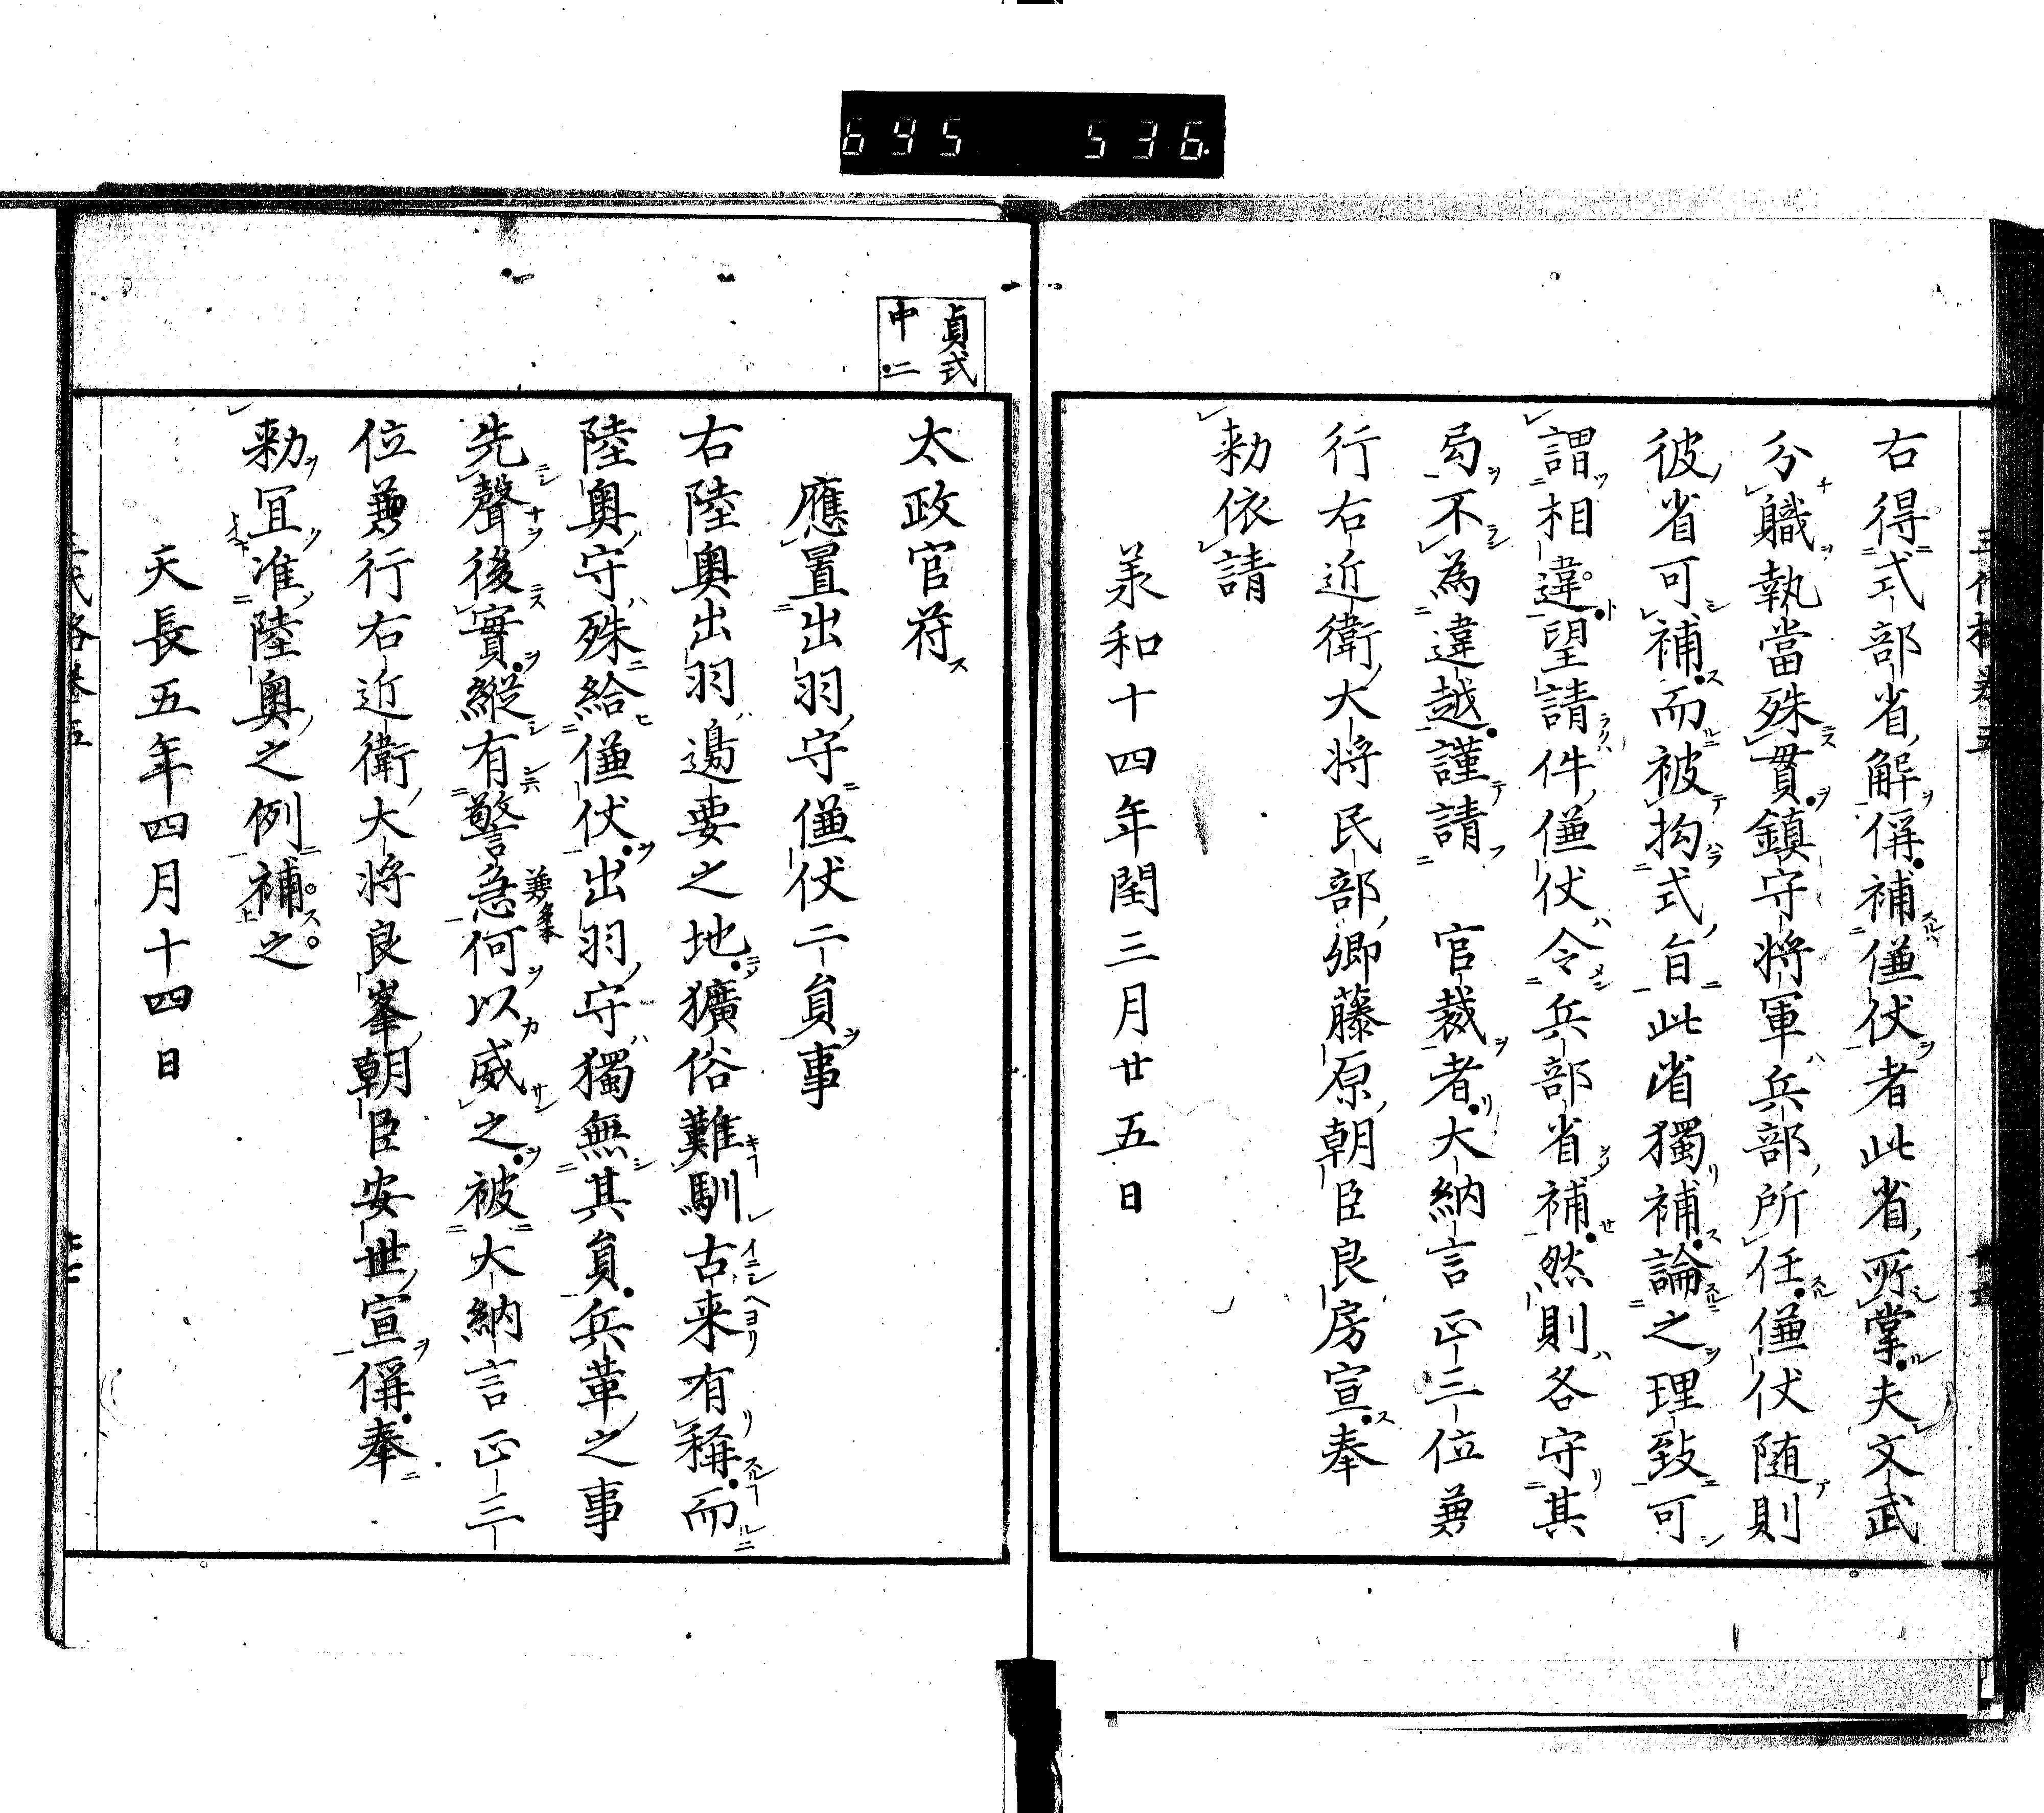 695 536
右得式部省解偁補傔仗者此省所掌夫文武
分職執當殊貫鎮守將軍兵部所任傔仗随則
彼省可補而被拘式旨此省獨補論之理致可
謂相違望請件傔仗令兵部省補然則各守其
局不為違越謹請 官裁者大納言正三位兼
行右近衛大将民部卿藤原朝臣良房宣奉
勑依請
羕和十四年閏三月廿五日
貞式
中二
太政官苻
應置出羽守傔仗二貟事
右陸奥出羽邊要之地獷俗難馴古来有稱而
陸奥守殊給傔仗出羽守獨無其貟兵革之事
先聲後實縱有警急何以威之被大納言正三
位兼行右近衛大将良峯朝臣安世宣偁奉
勑冝准陸奥之例補之
天長五年四月十四日